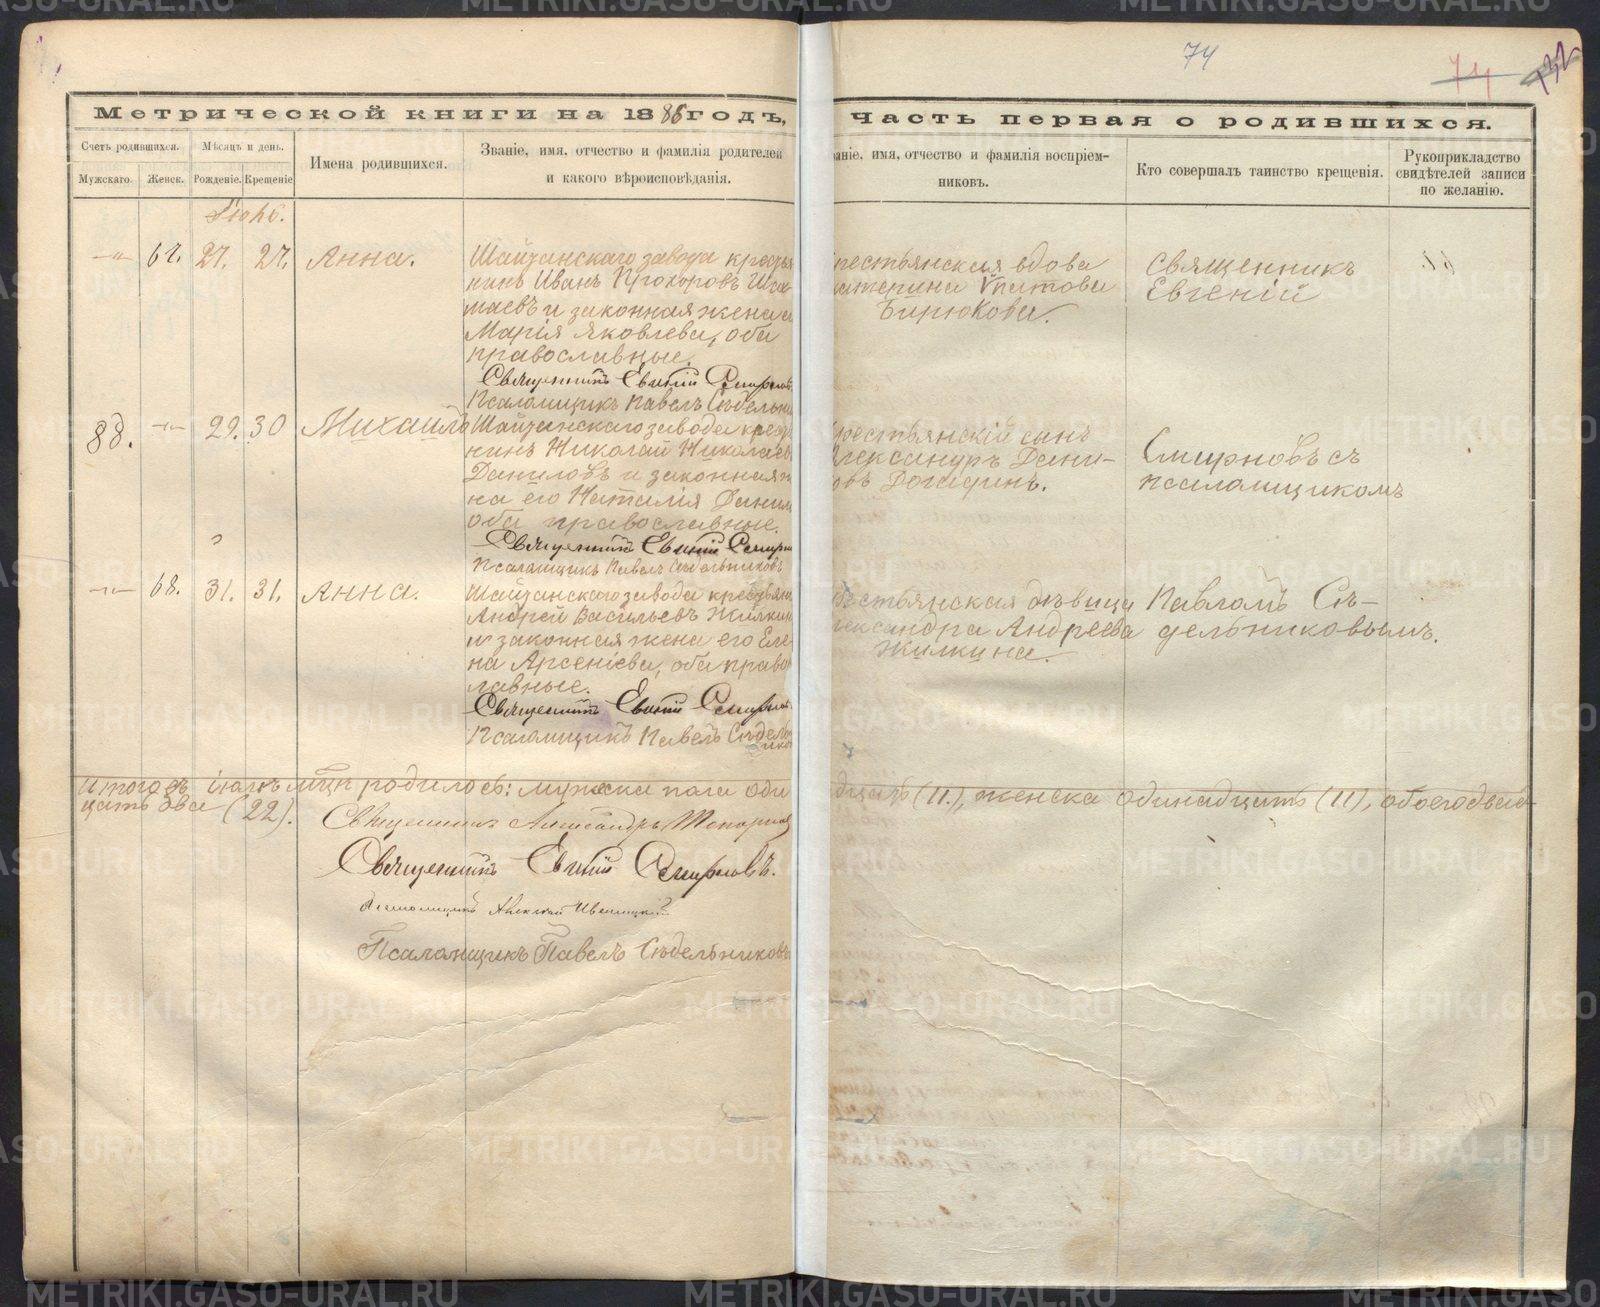 74
74
Метрической книги на 1886 годъ,
часть первая о родившихся.
Счетъ родившихся.
Мѣсяцъ и день.
Имена родившихся.
Званіе, имя, отчество и фамилія родителей
и какого вѣроисповѣданія.
Мужскаго.
Женск.
Рожденіе.
Крещеніе
ваніе, имя, отчество и фамилія воспріем-
никовъ.
Кто совершалъ таинство крещенія.
Рукоприкладство
свидѣтелей записи
по желанію.
67. 27. 27. Анна.
Шайтанскаго завода кресть
нинъ Иванъ Прохоровъ
и законная жена
Марія Яковлева, оба
православные.
Священникъ Евгеній Смирнов
Псаломщикъ Павелъ Сѣдельни
рестьянская вдова
атерина
Бирюкова.
Священникъ
Евгеній
88. 29. 30 Михаилъ
Шайтанскаго завода крест
нинъ Николай Николаев
Даниловъ и законная ж
на его Наталія Данил
оба православные.
Священникъ Евгеній Смирн
Псаломщикъ Павелъ Сѣдельниковъ
рестьянскій сынъ
лександръ Дани-
овъ
Смирновъ съ
псаломщикомъ
68. 31. 31. Анна.
Шайтанскаго завода крестьян
Андрей Васильевъ Жилкин
и законная жена его Еле
на Арсеніева, оба право
лавные.
Священникъ Евгеній Смирнов
Псаломщикъ Павелъ Сѣдель
ников
рестьянская дѣвица
лександра Андреева
Жилкина.
Павломъ Сѣ-
дельниковымъ.
Итого въ іюлѣ мцѣ родилось: мужеска пола оди
дцать (11.), женска одинадцать (11), обоего двад-
цать два (22).
Священникъ Александръ
Священникъ Евгеній Смирновъ.
Псаломщикъ Алексѣй
Псаломщикъ Павелъ Сѣдельниковъ
METRIKI.GASO-URAL.RU